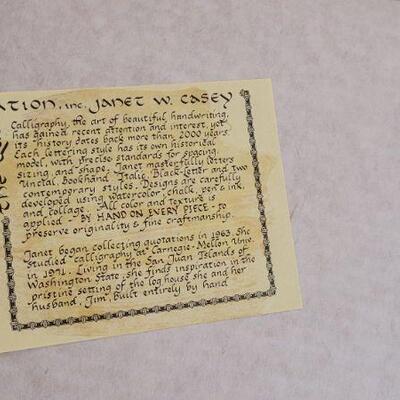 ATION, inc. JANET W. CASEY
Calligraphy, the art of beautiful handwriting,
has gained recent attention and interest, yet
its history dates back more than 2000 years.
Each lettering style has its own historical
model, with precise standards for spacing,
sizing, and shape. Janet masterfully letters
Uncial, Bookhand, Italic, Black-letter and two
contemporary styles. Designs are carefully
developed using watercolor, chalk, pen & ink,
and collage. All color and texture is
applied - BY HAND ON EVERY PIECE - to
preserve originality & fine craftmanship.
Janet began collecting quotations in 1963. She
studied calligraphy at Carnegie-Mellon Univ.
in 1971. Living in the San Juan Islands of
Washington State, she finds inspiration in the
pristine setting of the log house she and her
husband, Jim, built entirely by hand